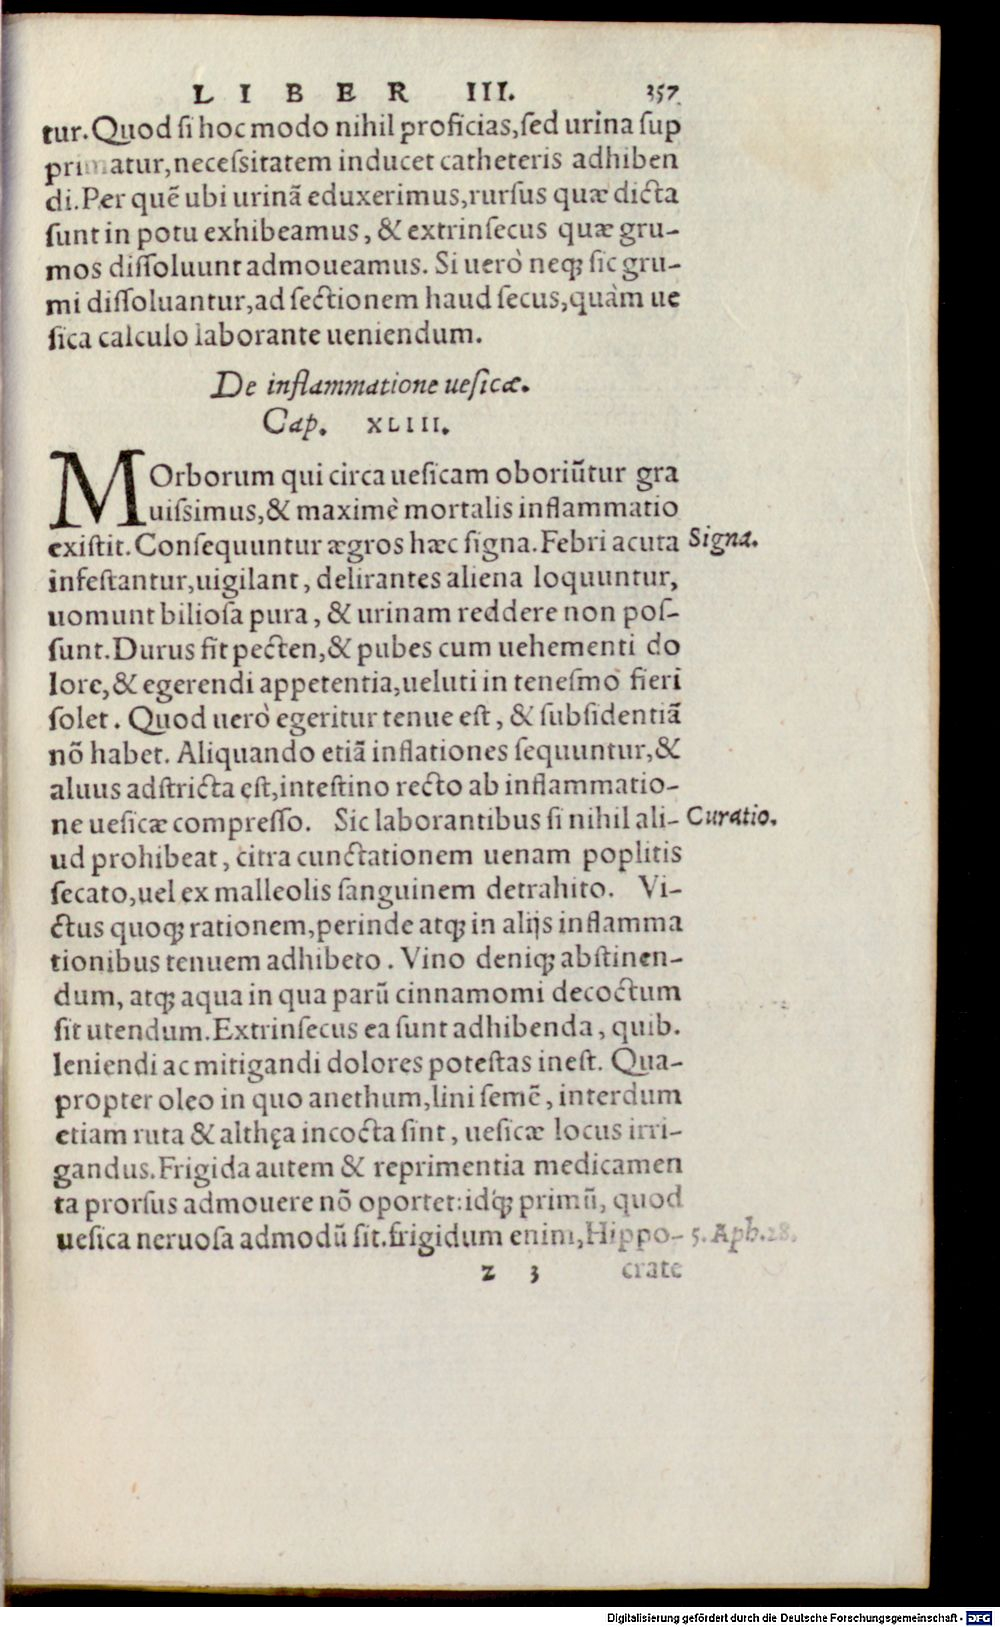 LIBER III. 357
tur. Quod si hoc modo nihil proficias, sed urina sup
primatur, necessitatem inducet catheteris adhiben
di. Per quẽ ubi urinã eduxerimus, rursus quæ dicta
sunt in potu exhibeamus, & extrinsecus quæ gru-
mos dissoluunt admoueamus. Si uerò neq; sic gru-
mi dissoluantur, ad sectionem haud secus, quàm ue
sica calculo laborante ueniendum.
De inflammatione uesicæ.
Cap. XLIII.
MOrborum qui circa uesicam oboriũtur gra
uissimus, & maximè mortalis inflammatio
existit. Consequuntur ægros hæc signa. Febri acuta Signa.
infestantur, uigilant, delirantes aliena loquuntur,
uomunt biliosa pura, & urinam reddere non pos-
sunt. Durus fit pecten, & pubes cum uehementi do
lore, & egerendi appetentia, ueluti in tenesmo fieri
solet. Quod uerò egeritur tenue est, & subsidentiã
nõ habet. Aliquando etiã inflationes sequuntur, &
aluus adstricta est, intestino recto ab inflammatio-
ne uesicæ compresso. Sic laborantibus si nihil ali- Curatio.
ud prohibeat, citra cunctationem uenam poplitis
secato, uel ex malleolis sanguinem detrahito. Vi-
ctus quoq; rationem, perinde atq; in alijs inflamma
tionibus tenuem adhibeto. Vino deniq; abstinen-
dum, atq; aqua in qua parũ cinnamomi decoctum
sit utendum. Extrinsecus ea sunt adhibenda, quib.
leniendi ac mitigandi dolores potestas inest. Qua-
propter oleo in quo anethum, lini semẽ, interdum
etiam ruta & althęa incocta sint, uesicæ locus irri-
gandus. Frigida autem & reprimentia medicamen
ta prorsus admouere nõ oportet: idq; primũ, quod
uesica neruosa admodũ sit. frigidum enim, Hippo- 5. Aph. 18.
z 3 crate
Digitalisierung gefördert durch die Deutsche Forschungsgemeinschaft - DFG